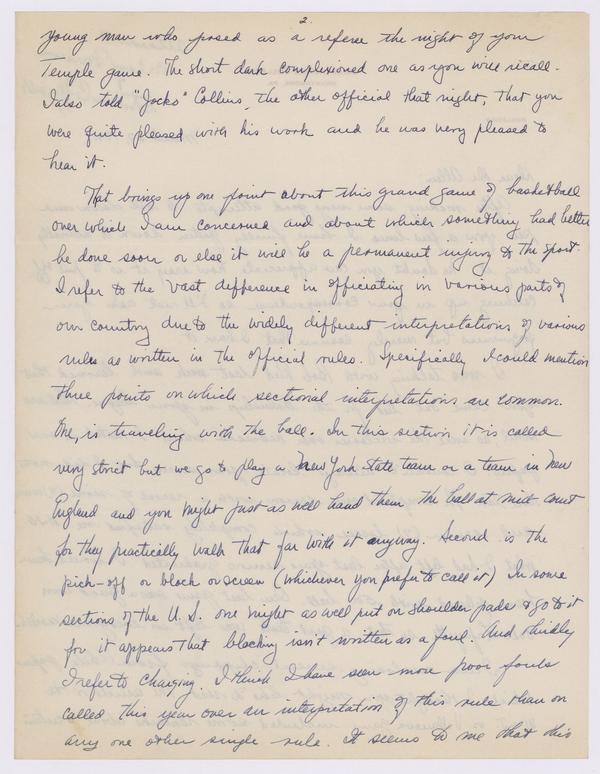 2.
young man who posed as a referee the night of your
Temple game. The short dark complexioned one as you will recall.
I also told "Jocko" Collins, the other official that night, that you
were quite pleased with his work and he was very pleased to
hear it.
That brings up one point about this grand game of basketball
over which I am concerned and about which something had better
be done soon or else it will be a permanent injury to the sport.
I refer to the vast difference in officiating in various parts of
our country due to the widely different interpretations of various
rules as written in the official rules. Specifically I could mention
three points on which sectional interpretations are common.
One, is traveling with the ball. In this section it is called
very strict but we go to play a New York State team or a team in New
England and you might just as well hand them the ball at mid court
for they practically walk that far with it anyway. Second is the
pick-off or block or screen (whichever you prefer to call it) In some
sections of the U.S. one might as well put on shoulder pads & go to it
for it appears that blocking isn't written as a foul. And thirdly
I refer to charging. I think I have seen more poor fouls
called this year over an interpretation of this rule than on
any one other single rule. It seems to me that this